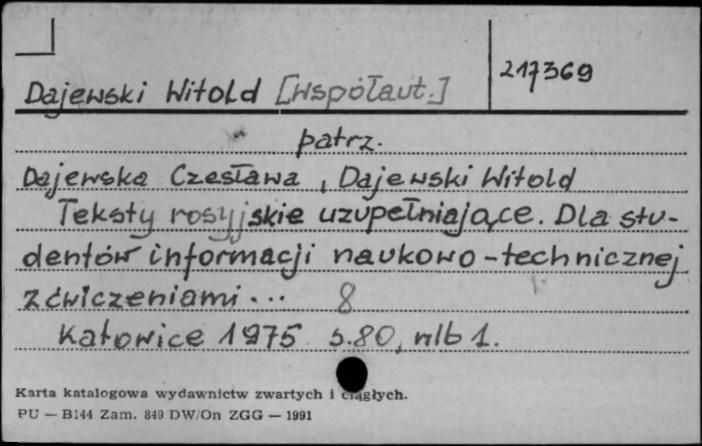 217369
Dajewski Witold [współaut.]
patrz.
Dajewska Czesława, Dajewski Witold
Teksty rosyjskie uzupełniające. Dla stu-
dentów informacji naukowo-technicznej
z ćwiczeniami... 8
Katowice 1975 s.80, nlb 1.
Karta katalogowa wydawnictw zwartych i ciągłych.
PU — B144 Zam. 849 DW/On ZGG — 1991